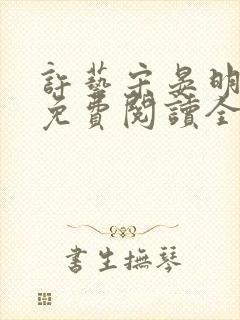 許藝宋晏明
免費閱讀全
書生撫琴